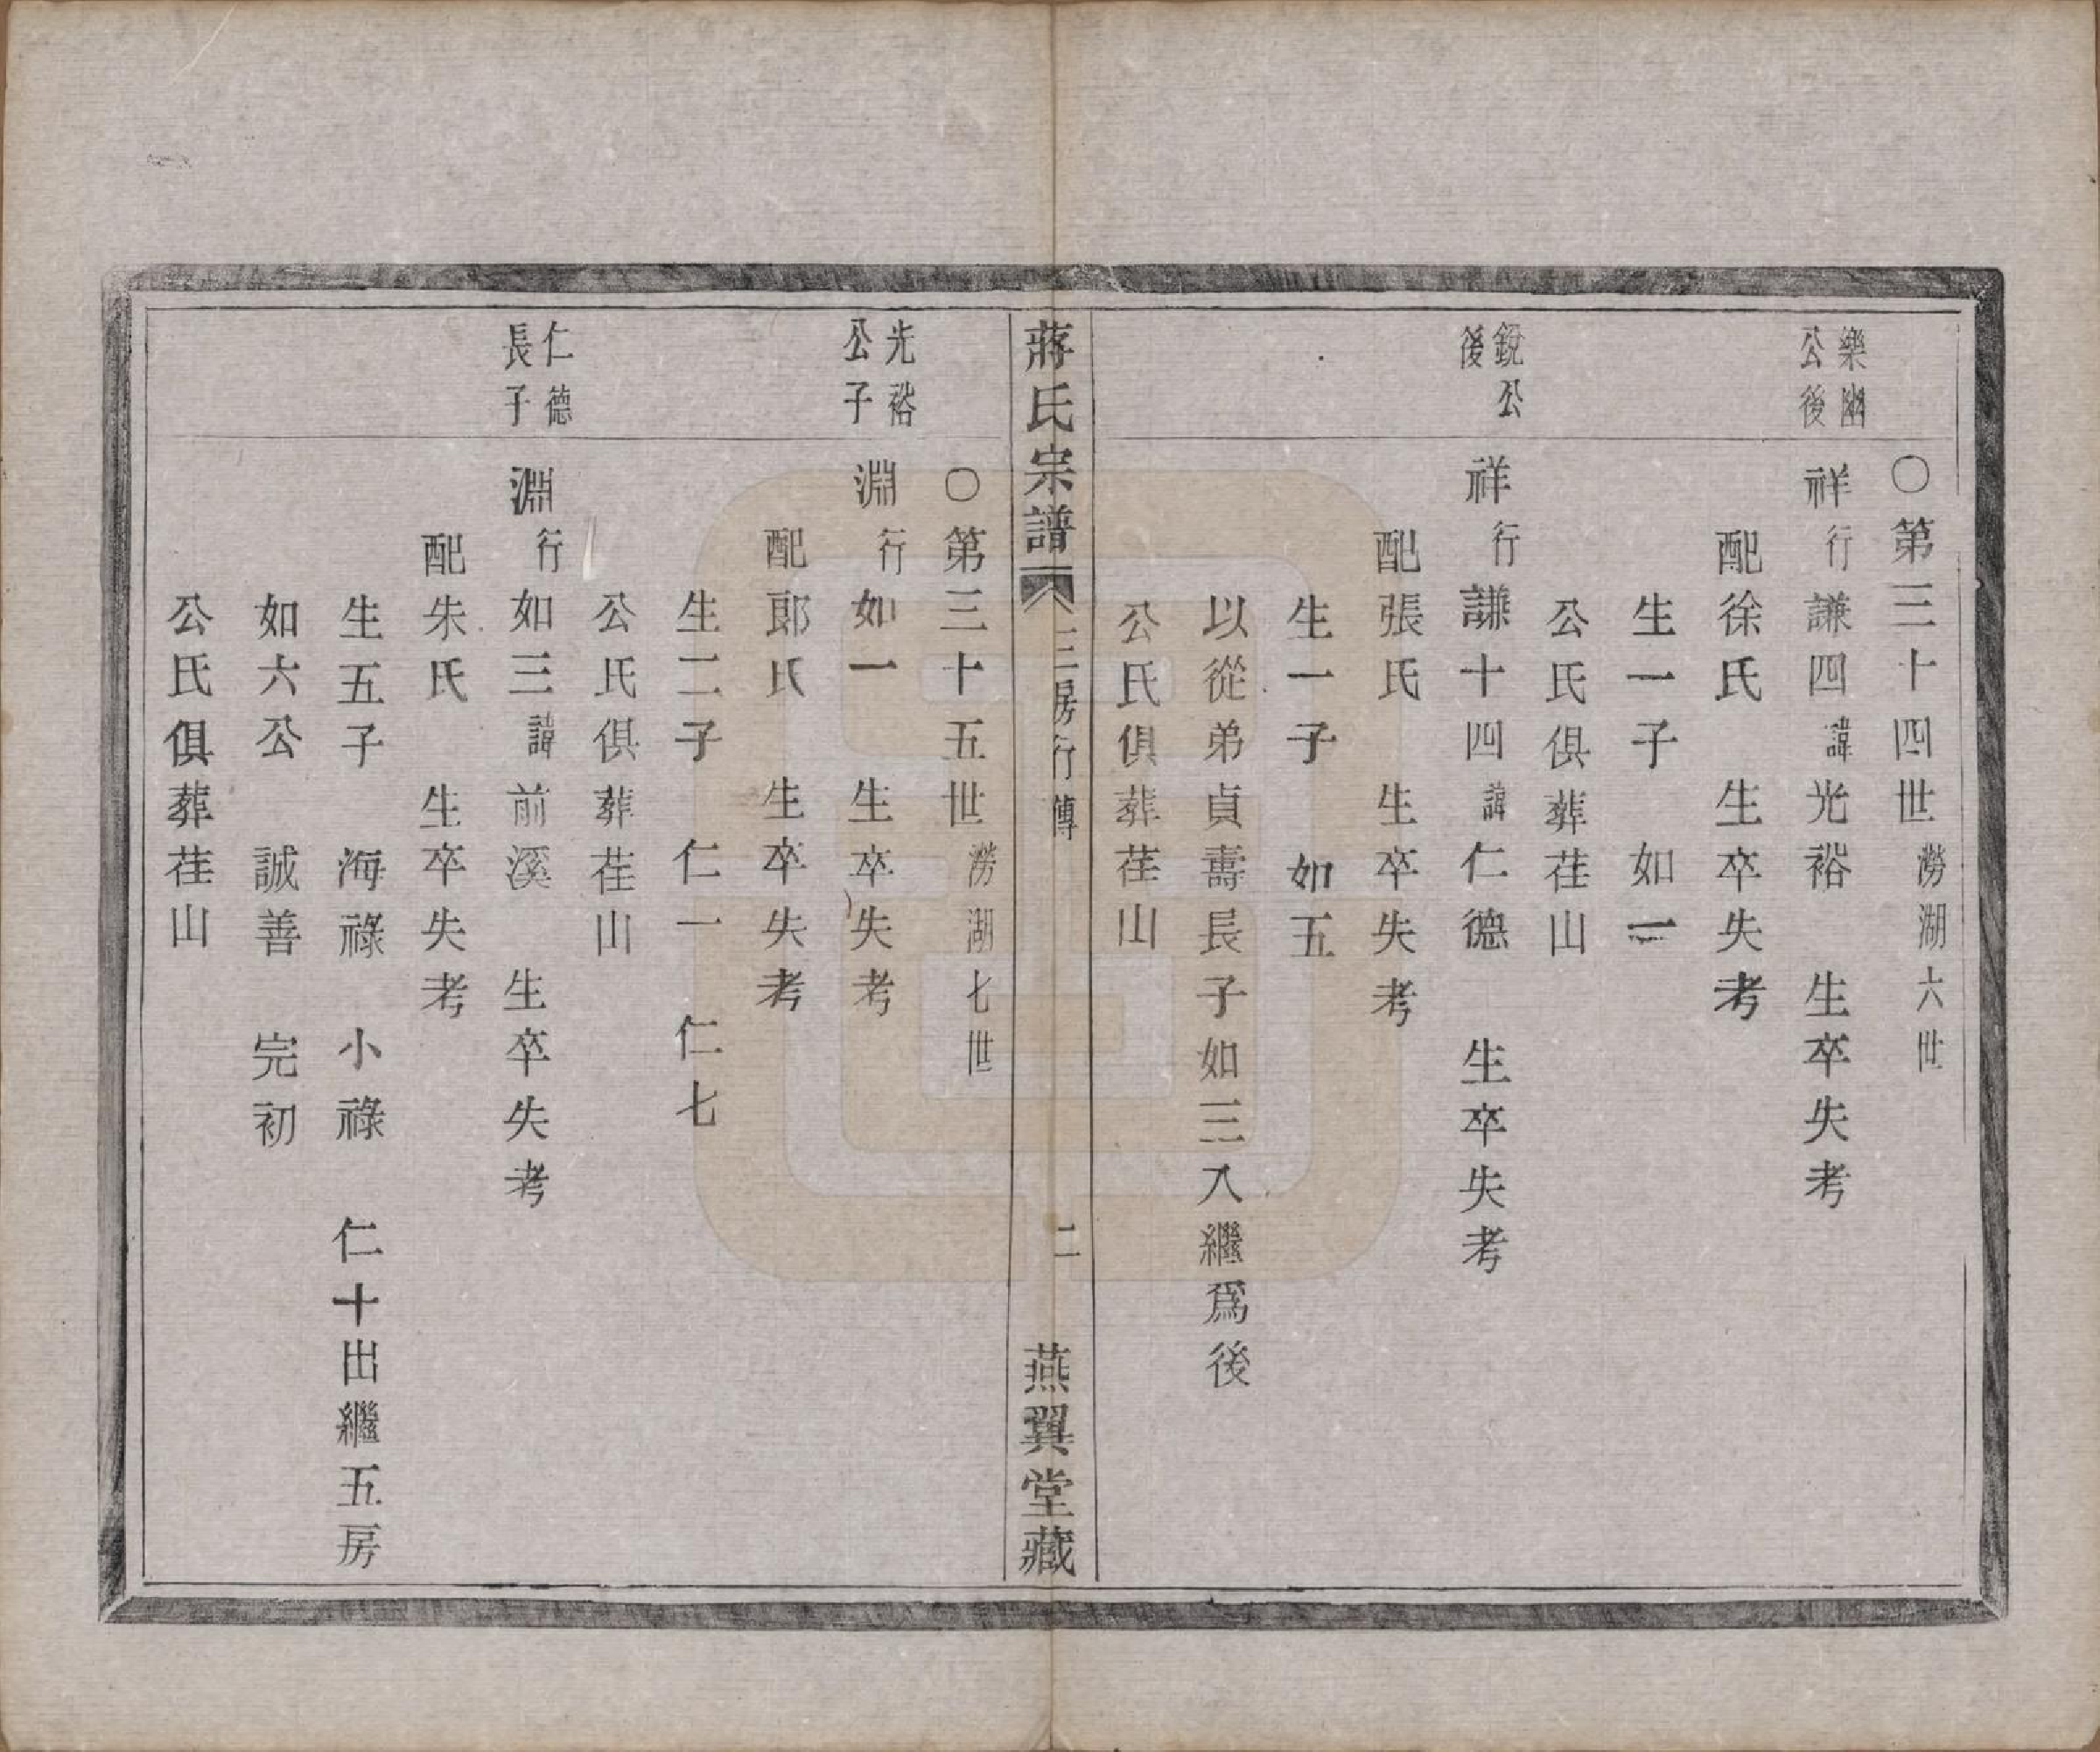 〇第三十四世澇湖六世
樂幽公後
祥行謙四諱光裕　生卒失考
配徐氏　生卒失考
生一子　如一
公氏俱葬茌山
銳公後
祥行謙十四諱仁德　生卒失考
配張氏　生卒失考
生一子　如五
以從弟貞壽長子如三入繼爲後
公氏俱葬茌山
蔣氏宗譜　三房行傳　二　燕翼堂藏
〇第三十五世澇湖七世
光裕公子
淵行如一　生卒失考
配郎氏　生卒失考
生二子　仁一　仁七
公氏俱葬茌山
仁德長子
淵行如三諱前溪　生卒失考
配朱氏　生卒失考
生五子　海祿　小祿　仁十出繼五房
如六公　誠善　完初
公氏俱葬茌山